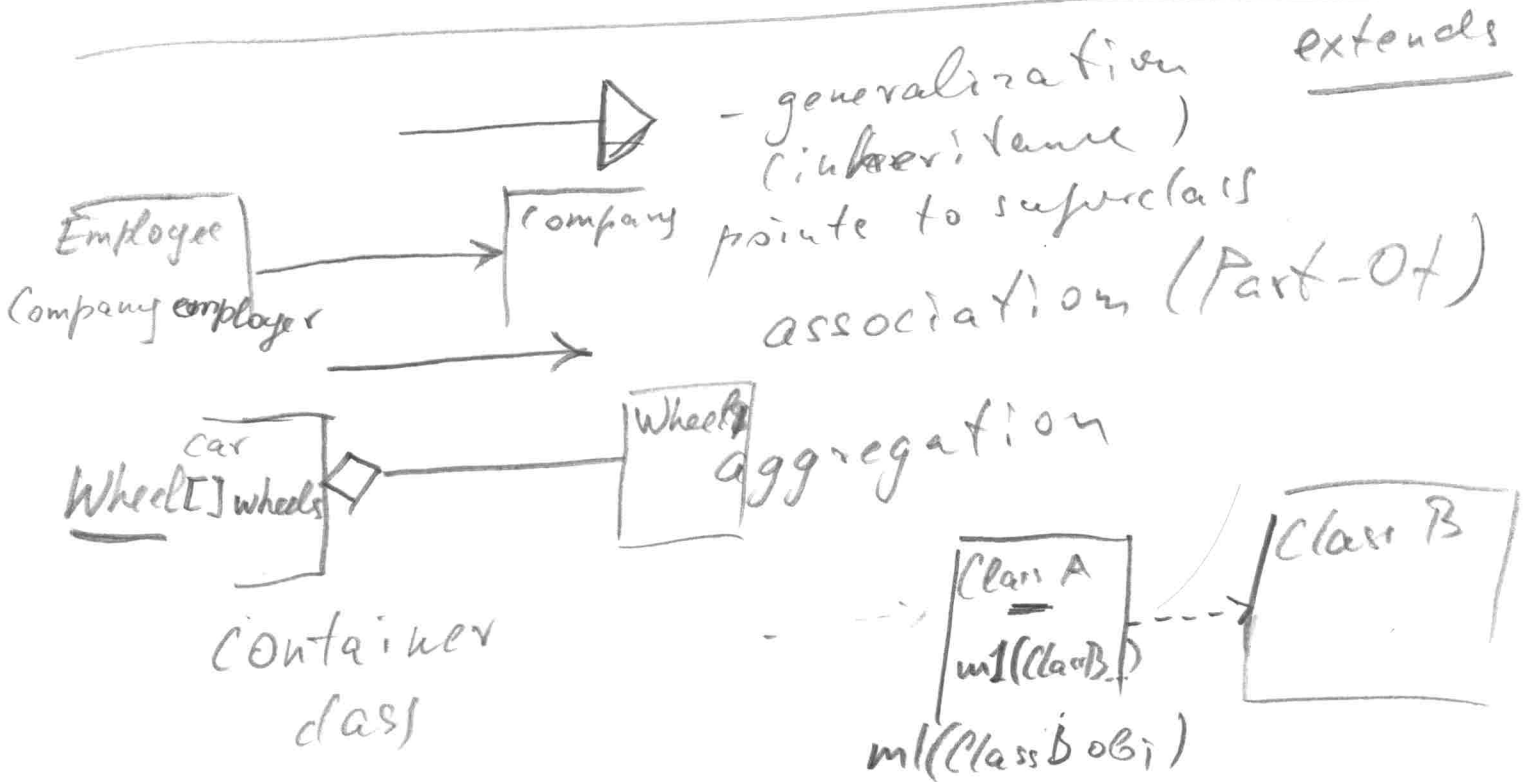 extends
- generalization
(inheritance)
points to superclass
Employee
Company employer
Company
association (Part-Of)
car
Wheel[] wheels
Wheels
aggregation
Container
class
Class A
m1(ClassB )
m1(ClassB obj)
Class B